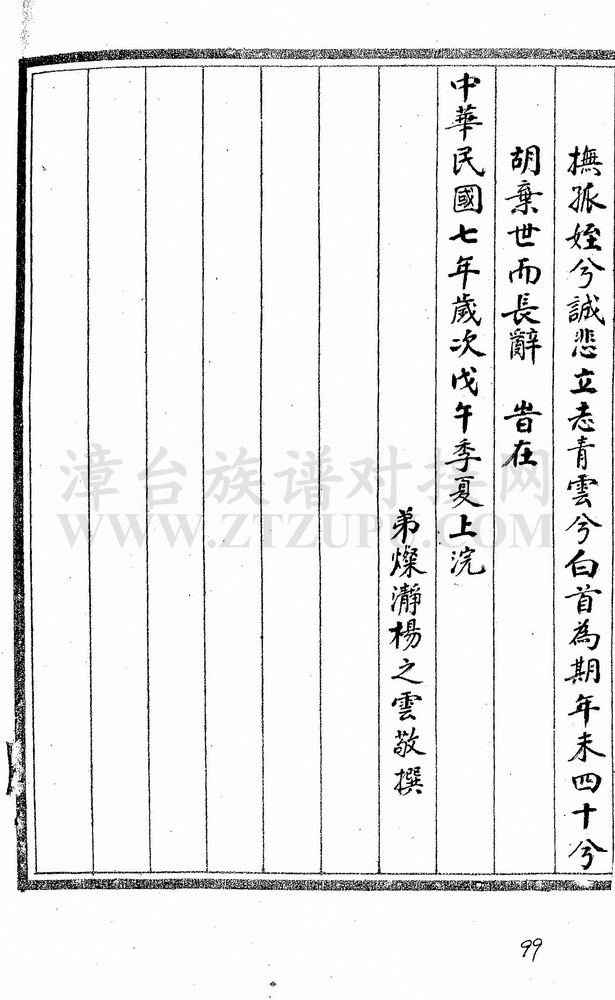 撫孤姪兮誠悲立志青雲兮白首為期年未四十兮
胡棄世而長辭 旹在
中華民國七年歲次戊午季夏上浣
弟燦瀞楊之雲敬撰
漳台族谱对接网
WWW.ZTZUPU.COM
99